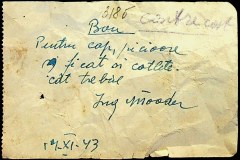 3186
Bon
Pentru cap, picioare
și ficat și cotlete
cât trebue
Ing
14-XI-43